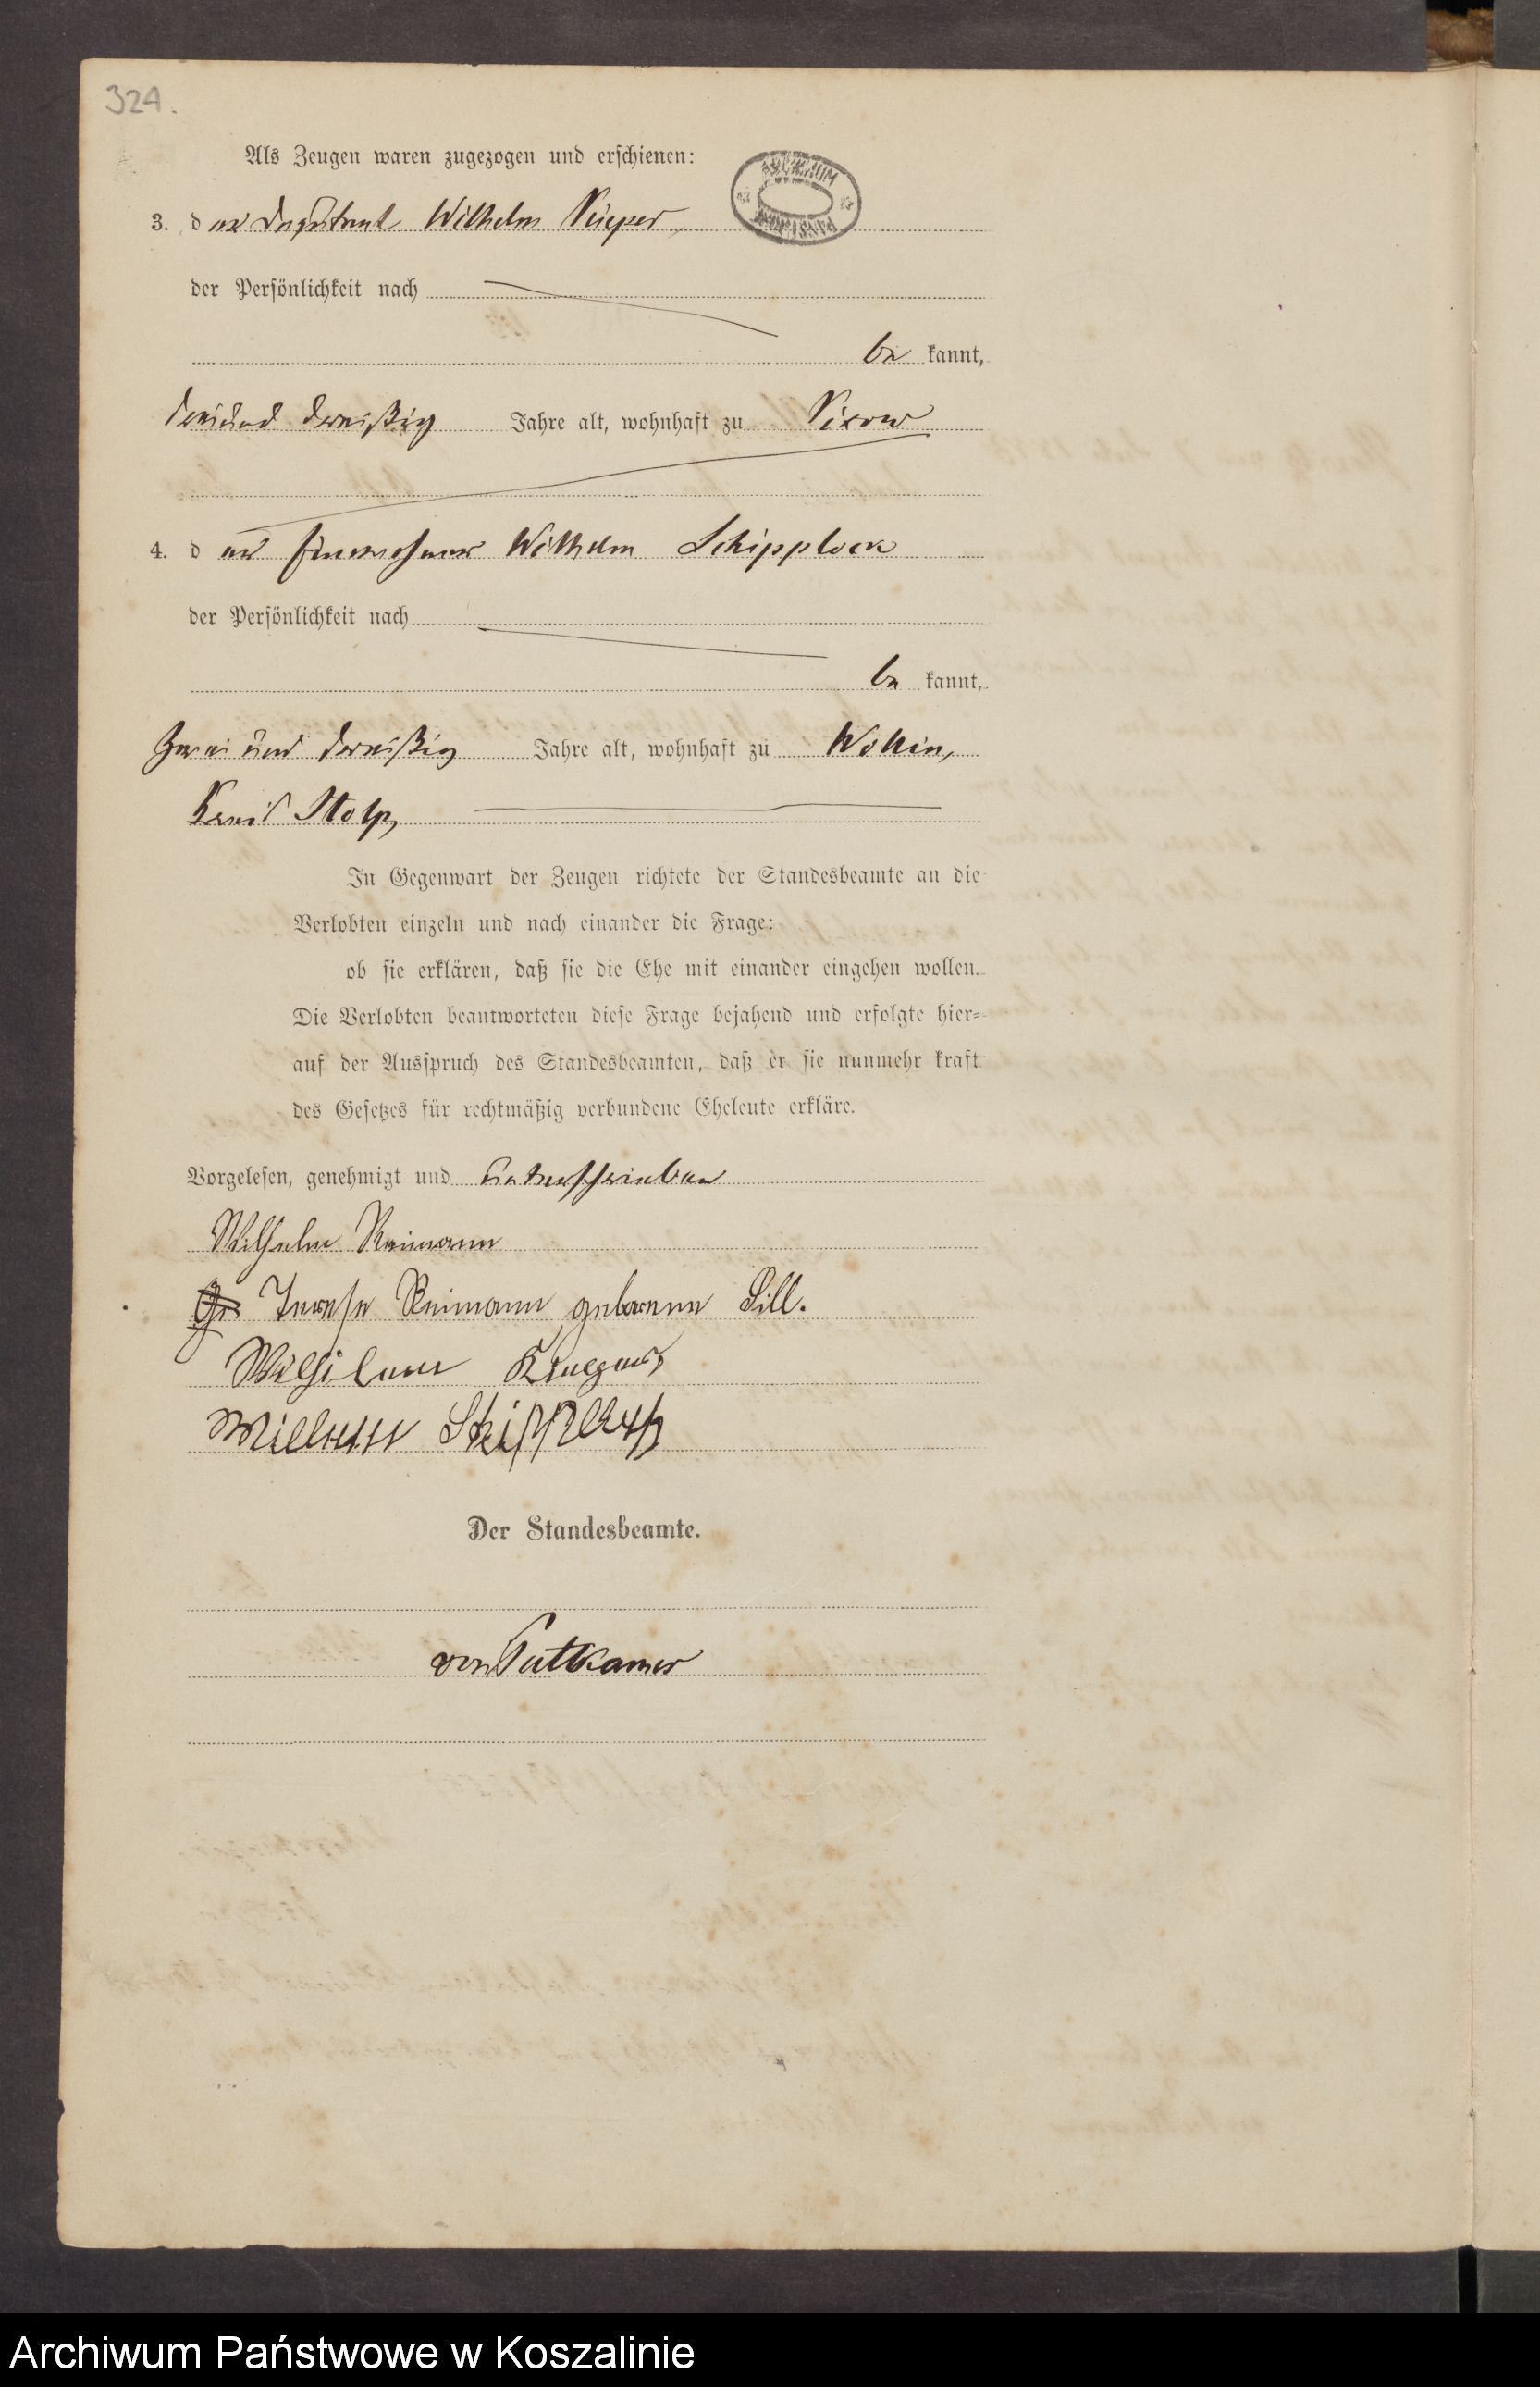 324.
Als Zeugen waren zugezogen und erschienen:
3. der Deputant Wilhelm
der Persönlichkeit nach
be kannt,
dreiund dreißig Jahre alt, wohnhaft zu Vixow
4. der Einwohner Wilhelm Schipplock
der Persönlichkeit nach
be kannt,
zwei und dreißig Jahre alt, wohnhaft zu Wollin,
Kreis Stolp,
In Gegenwart der Zeugen richtete der Standesbeamte an die
Verlobten einzeln und nach einander die Frage:
ob sie erklären, daß sie die Ehe mit einander eingehen wollen.
Die Verlobten beantworteten diese Frage bejahend und erfolgte hier=
auf der Ausspruch des Standesbeamten, daß er sie nunmehr kraft
des Gesetzes für rechtmäßig verbundene Eheleute erkläre.
Vorgelesen, genehmigt und unterschrieben
Wilhelm Reimann
Reimann geborenn Sill.
Wilhelm
Der Standesbeamte.
von Puttkamer
Archiwum Państwowe w Koszalinie